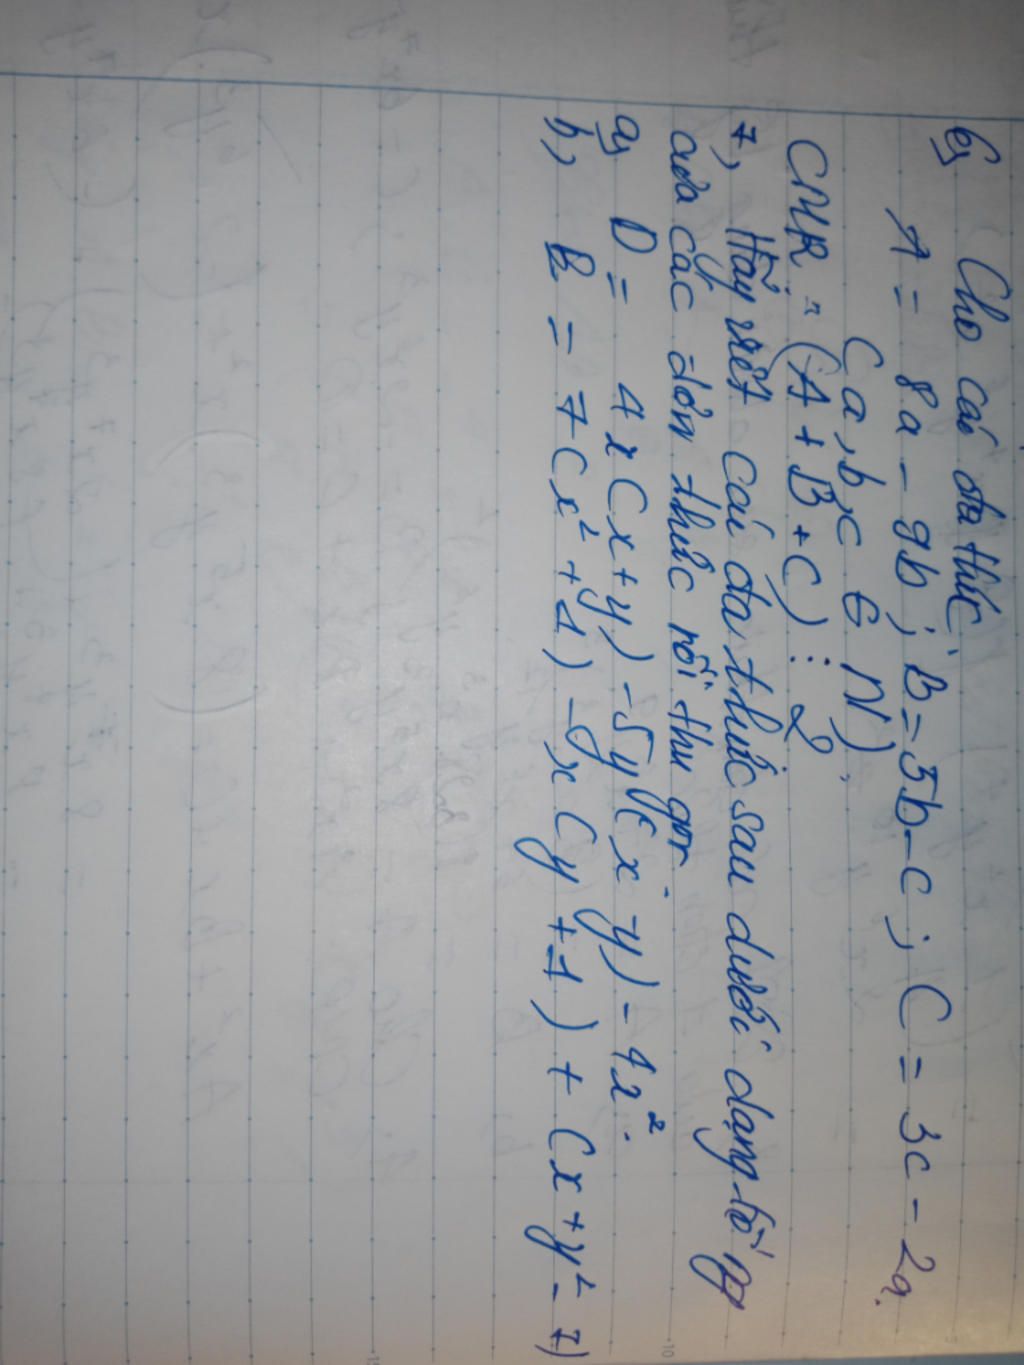 6, Cho các đa thức
A = 8a - 9b ; B = 5b - c ; C = 3c - 2a.
(a, b, c ∈ N)
CMR : (A + B + C) ⋮ 2
7, Hãy viết các đa thức sau dưới dạng tổng
của các đơn thức rồi thu gọn
a, D = 4x(x+y) - 5y(x-y) - 4x².
b, B = 7(x² + 1) - yx(y + 1) + (x + y² - 7)